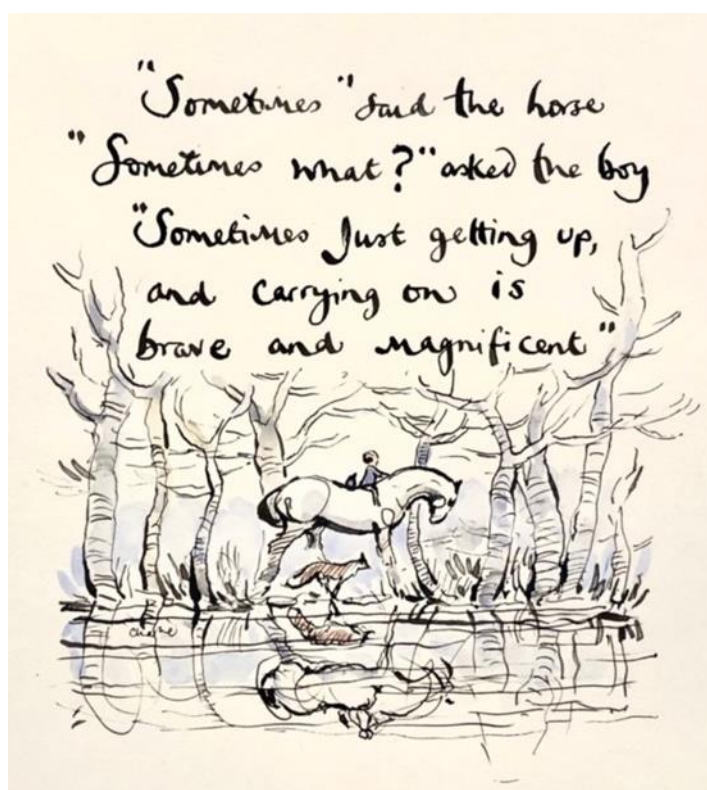 "Sometimes" said the horse
"Sometimes what?" asked the boy
"Sometimes Just getting up,
and carrying on is
brave and magnificent"